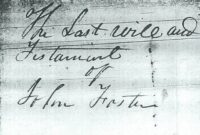 of
The Last will and
Testament
of
John Foster